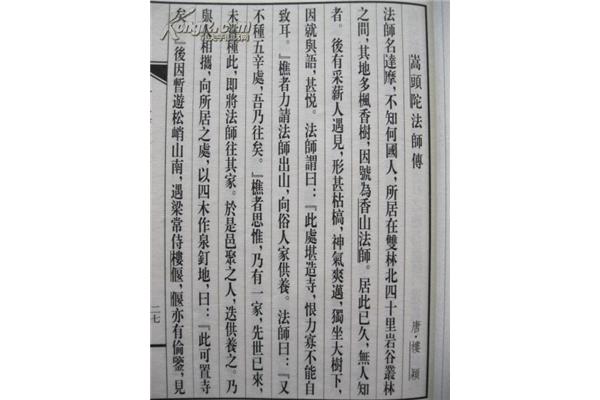 嵩頭陀法師傳
唐·樓穎
法師名達摩，不知何國人，所居在雙林北四十里岩谷叢林
之間，其地多楓香樹，因號為香山法師。居此已久，無人知
者。後有采薪人遇見，形甚枯槁，神氣爽邁，獨坐大樹下，
因就與語，甚悦。法師謂曰：『此處堪造寺，恨力寡不能自
致耳。』樵者力請法師出山，向俗人家供養。法師曰：『又
不種五辛處，吾乃往矣。』樵者思惟，乃有一家，先世已來，
未嘗種此，即將法師往其家。於是邑聚之人，迭供養之。乃
與人相攜，向所居之處，以四木作泉釘地，曰：『此可置寺
矣。』後因暫遊松峭山南，遇梁常侍樓偃，偃亦有倫鑒，見
二七
Kongfz.com